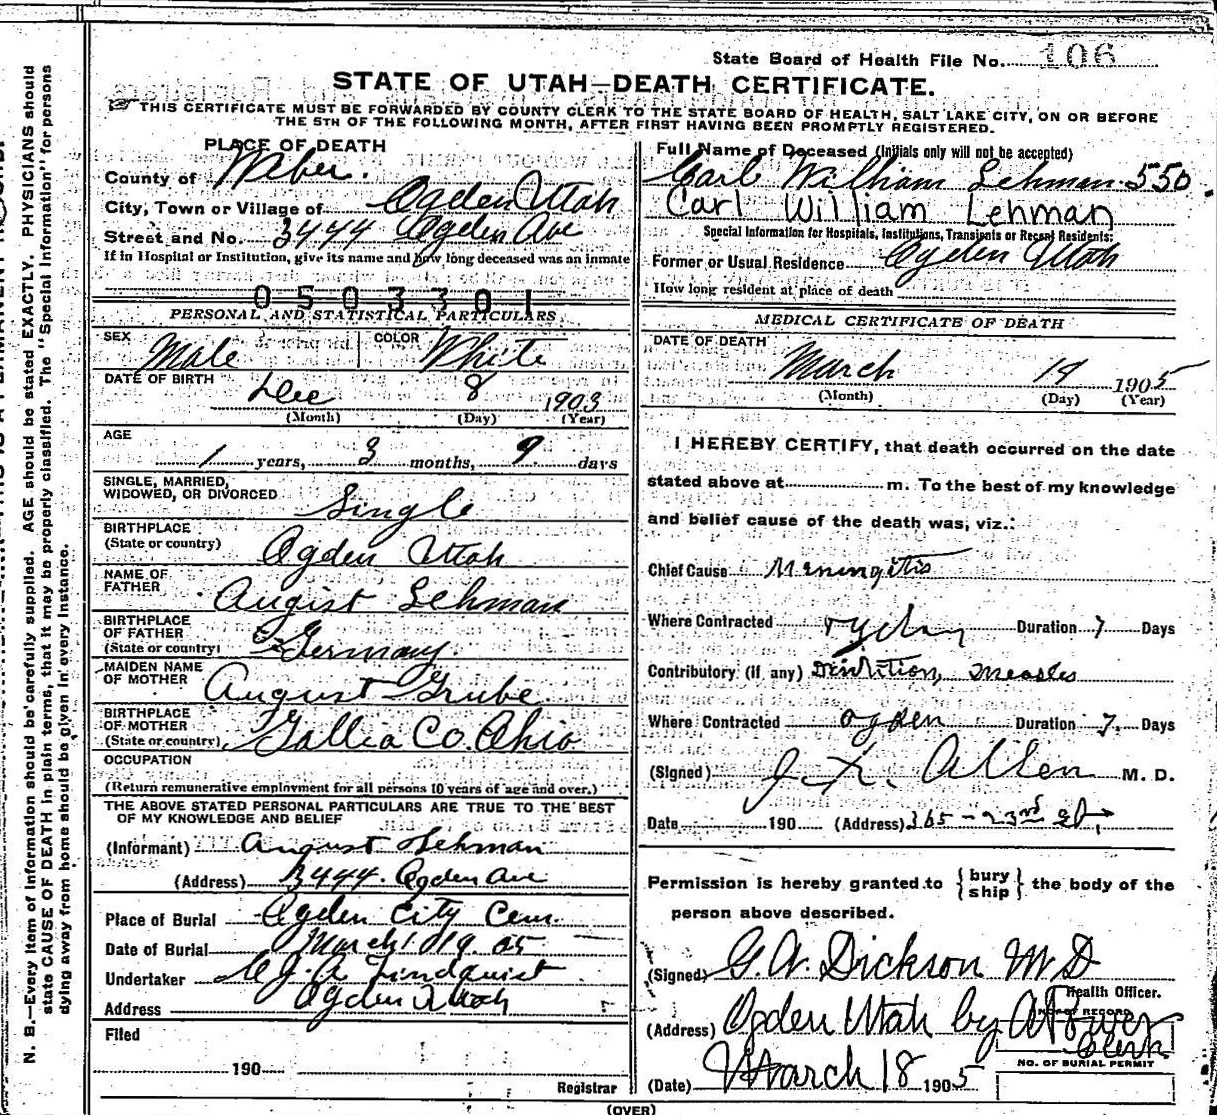 State Board of Health File No. 106
STATE OF UTAH—DEATH CERTIFICATE.
THIS CERTIFICATE MUST BE FORWARDED BY COUNTY CLERK TO THE STATE BOARD OF HEALTH, SALT LAKE CITY, ON OR BEFORE
THE 5TH OF THE FOLLOWING MONTH, AFTER FIRST HAVING BEEN PROMPTLY REGISTERED.
PLACE OF DEATH
County of Weber.
City, Town or Village of Ogden Utah
Street and No. 3444 Ogden Ave
If in Hospital or Institution, give its name and how long deceased was an inmate
0503301
PERSONAL AND STATISTICAL PARTICULARS
SEX Male COLOR White
DATE OF BIRTH Dec 8 1903
(Month) (Day) (Year)
AGE
1 years, 3 months, 9 days
SINGLE, MARRIED,
WIDOWED, OR DIVORCED Single
BIRTHPLACE
(State or country) Ogden Utah
NAME OF
FATHER August Lehman
BIRTHPLACE
OF FATHER
(State or country) Germany.
MAIDEN NAME
OF MOTHER August Grube.
BIRTHPLACE
OF MOTHER
(State or country) Gallia Co. Ohio
OCCUPATION
(Return remunerative employment for all persons 10 years of age and over.)
THE ABOVE STATED PERSONAL PARTICULARS ARE TRUE TO THE BEST
OF MY KNOWLEDGE AND BELIEF
(Informant) August Lehman
(Address) 3444 Ogden Ave
Place of Burial Ogden City Cem.
Date of Burial March 19. 05
Undertaker Lindquist
Address Ogden Utah
Filed
190
Registrar
Full Name of Deceased (Initials only will not be accepted)
Carl William Lehman 550
Carl William Lehman
Special Information for Hospitals, Institutions, Transients or Recent Residents:
Former or Usual Residence Ogden Utah
How long resident at place of death
MEDICAL CERTIFICATE OF DEATH
DATE OF DEATH
March 17 1905
(Month) (Day) (Year)
I HEREBY CERTIFY, that death occurred on the date
stated above at m. To the best of my knowledge
and belief cause of the death was, viz.:
Chief Cause Meningitis
Where Contracted Ogden Duration 7 Days
Contributory (if any) Dentition, Measles
Where Contracted Ogden Duration 7 Days
(Signed) Allen M. D.
Date 190 (Address) 365 - 23rd St,
Permission is hereby granted to { bury ship } the body of the
person above described.
(Signed) G. W. Dickson M D
Health Officer.
(Address) Ogden Utah by
Clerk
NO. OF BURIAL PERMIT
(Date) March 18 1905
(OVER)
N. B.—Every item of information should be carefully supplied. AGE should be stated EXACTLY. PHYSICIANS should
state CAUSE OF DEATH in plain terms, that it may be properly classified. The "Special Information" for persons
dying away from home should be given in every instance.